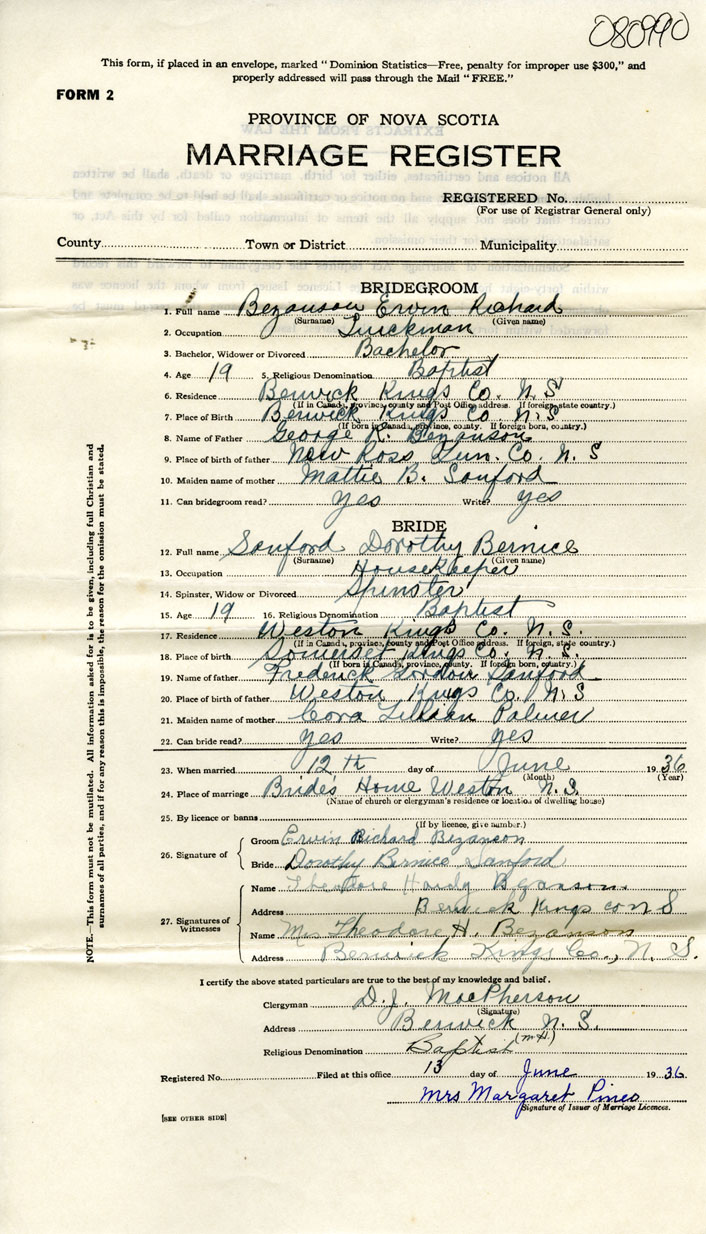 080990
This form, if placed in an envelope, marked "Dominion Statistics—Free, penalty for improper use $300," and
properly addressed will pass through the Mail "FREE."
FORM 2
PROVINCE OF NOVA SCOTIA
MARRIAGE REGISTER
REGISTERED No.
(For use of Registrar General only)
County Town or District Municipality
BRIDEGROOM
1. Full name Bezanson Ervin Richard
(Surname) (Given name)
2. Occupation Truckman
3. Bachelor, Widower or Divorced Bachelor
4. Age 19 5. Religious Denomination Baptist
6. Residence Berwick Kings Co. N.S
(If in Canada, province, county and Post Office address. If foreign, state country.)
7. Place of Birth Berwick Kings Co N.S
(If born in Canada, province, county. If foreign born, country.)
8. Name of Father George R. Bezanson
9. Place of birth of father New Ross Lun. Co. N. S
10. Maiden name of mother Mattie B. Sanford
11. Can bridegroom read? yes Write? yes
BRIDE
12. Full name Sanford Dorothy Bernice
(Surname) (Given name)
13. Occupation Housekeeper
14. Spinster, Widow or Divorced Spinster
15. Age 19 16. Religious Denomination Baptist
17. Residence Weston Kings Co. N. S.
(If in Canada, province, county and Post Office address. If foreign, state country.)
18. Place of birth Somerset Kings Co. N. S.
(If born in Canada, province, county. If foreign born, country.)
19. Name of father Frederick Gordon Sanford
20. Place of birth of father Weston Kings Co. N. S
21. Maiden name of mother Cora Lillian Palmer
22. Can bride read? yes Write? yes
23. When married 12 th day of June 1936
(Month) (Year)
24. Place of marriage Brides Home Weston N.S.
(Name of church or clergyman's residence or location of dwelling house)
25. By licence or banns
(If by licence, give number.)
26. Signature of
Groom Ervin Richard Bezanson
Bride Dorothy Bernice Sanford
27. Signatures of Witnesses
Name Theodore Hardy Bezanson.
Address Berwick Kings co N S
Name Mrs Theodore H. Bezanson
Address Berwick Kings Co., N. S.
NOTE.—This form must not be mutilated. All information asked for is to be given, including full Christian and
surnames of all parties, and if for any reason this is impossible, the reason for the omission must be stated.
I certify the above stated particulars are true to the best of my knowledge and belief.
Clergyman D. J. MacPherson
(Signature)
Address Berwick N. S.
Religious Denomination Baptist
Registered No. Filed at this office 13 day of June 1936
Mrs Margaret Pineo
Signature of Issuer of Marriage Licences.
[SEE OTHER SIDE]